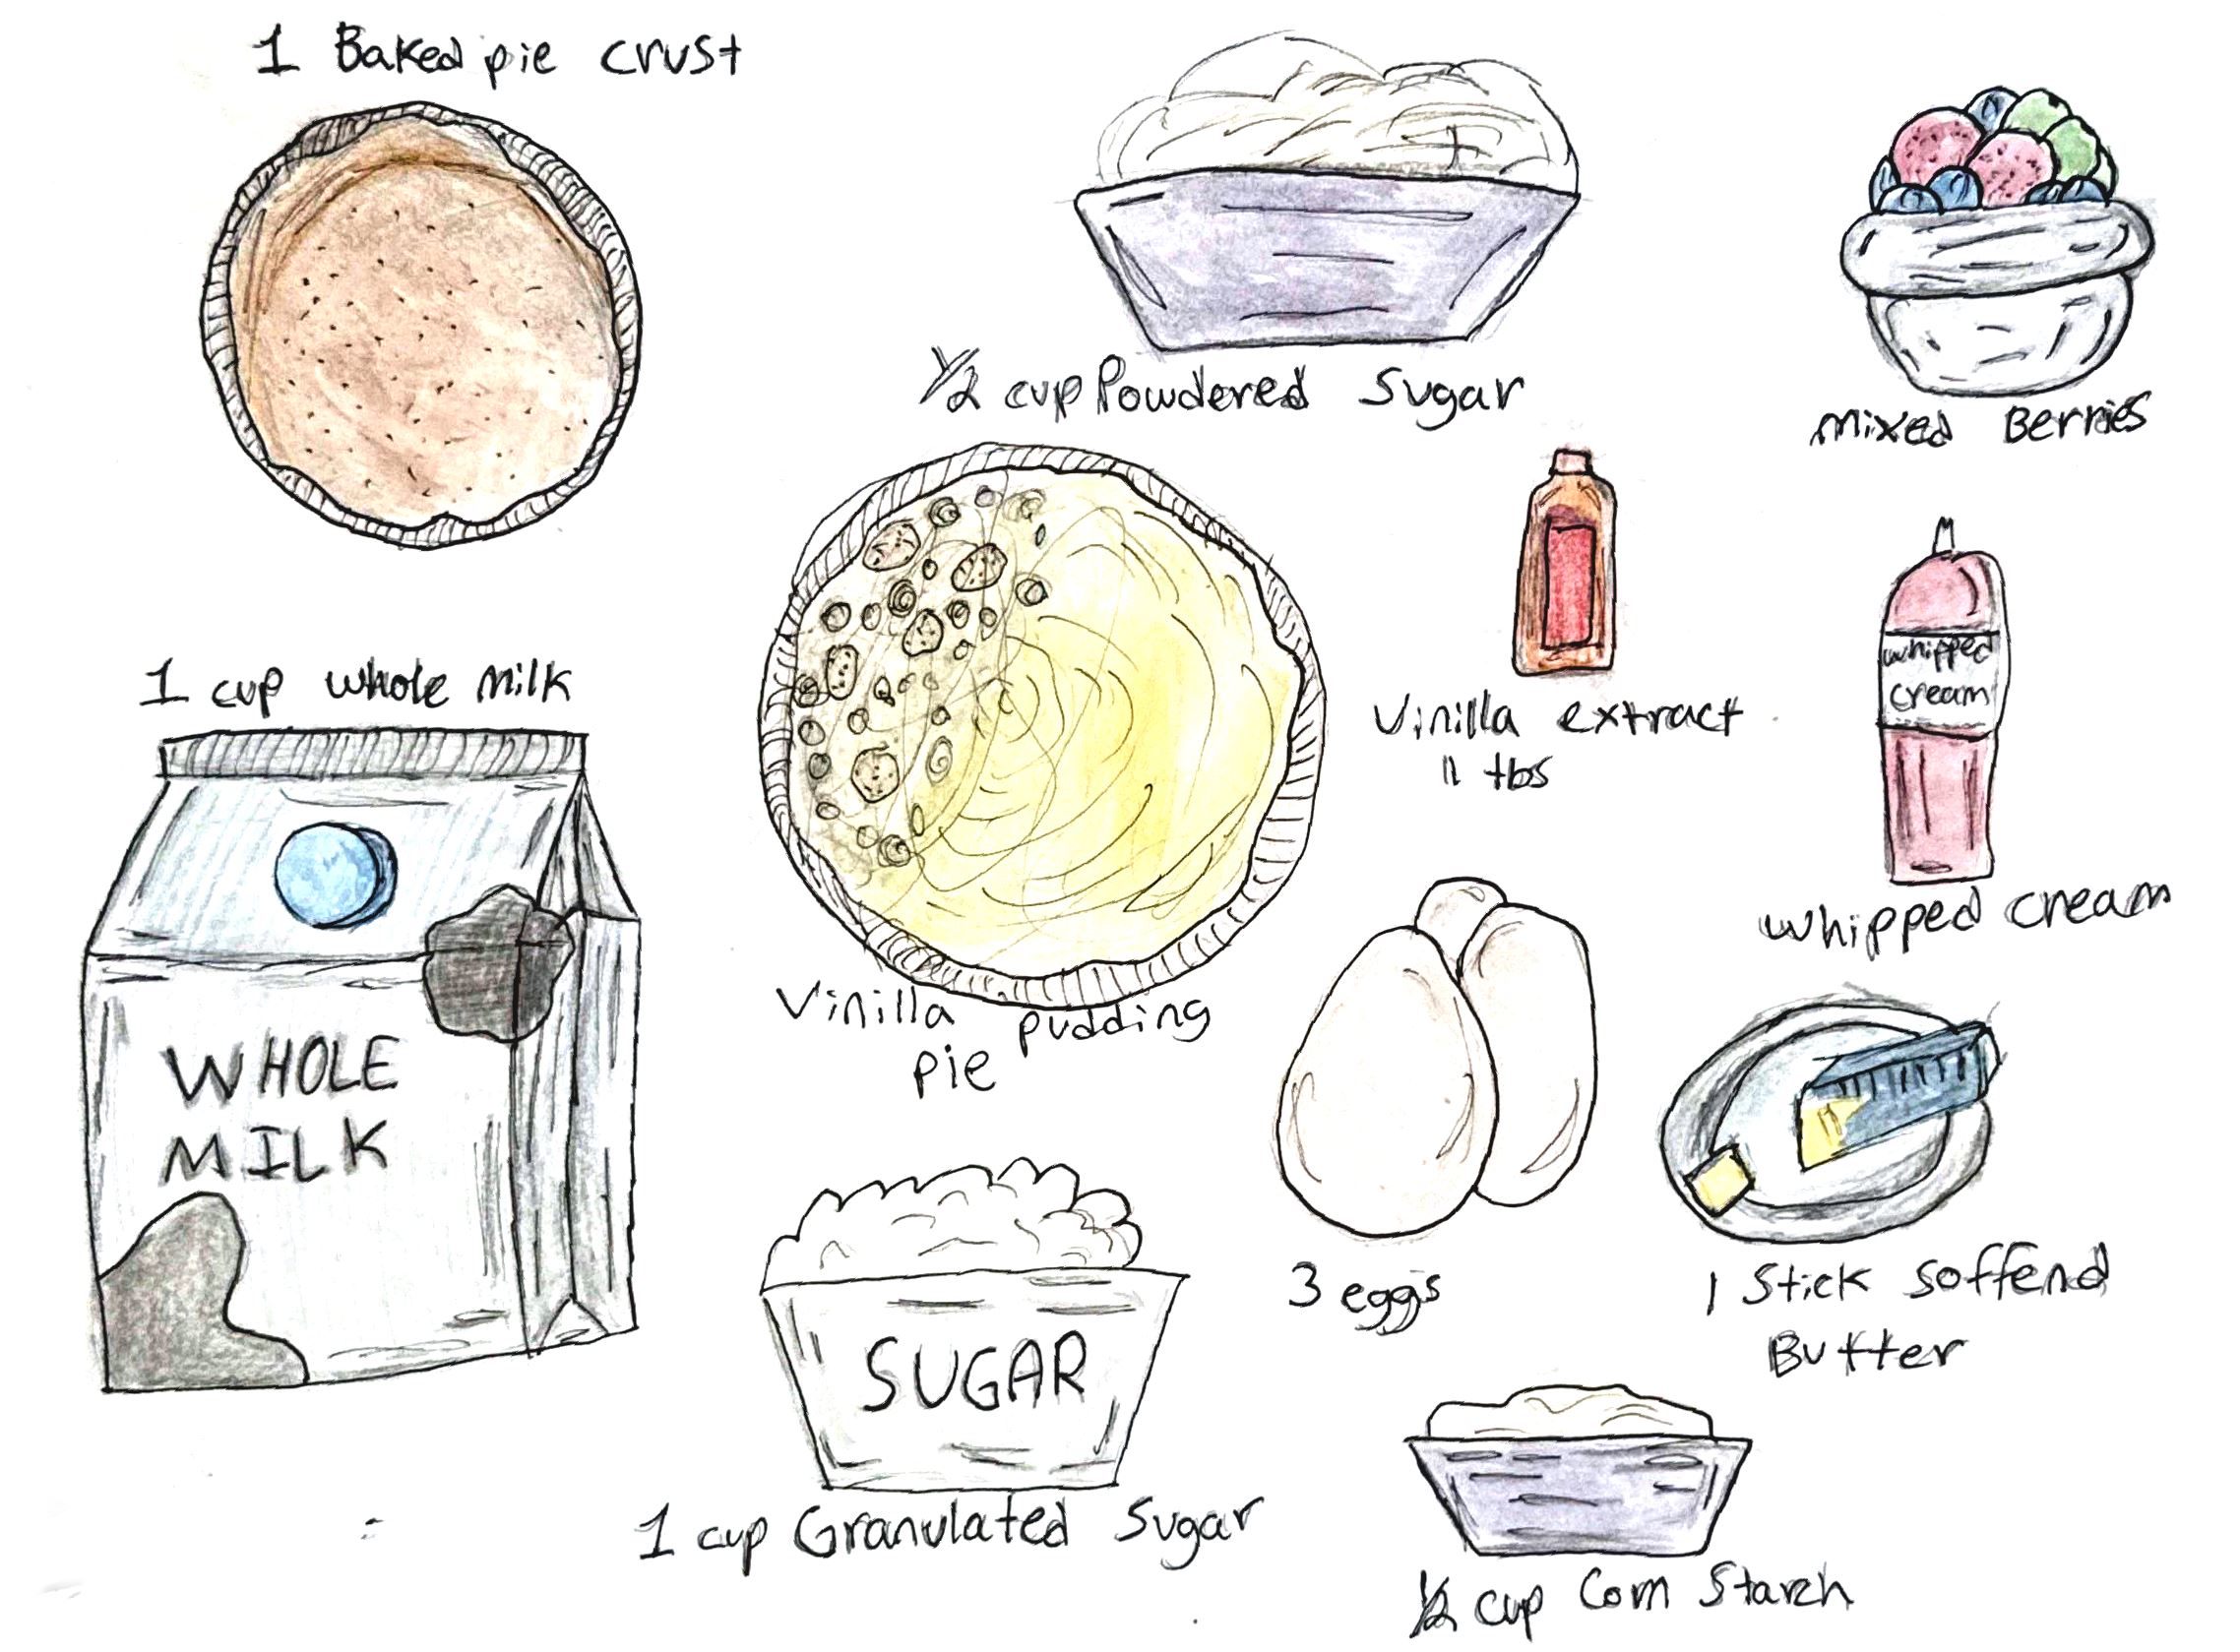 1 Baked pie crust
1/2 cup Powdered Sugar
mixed Berries
1 cup whole milk
WHOLE
MILK
Vinilla extract
11 tbs
whipped
cream
whipped cream
Vinilla pudding
pie
3 eggs
1 Stick Soffend
Butter
SUGAR
1 cup Granulated Sugar
1/2 cup Corn Starch